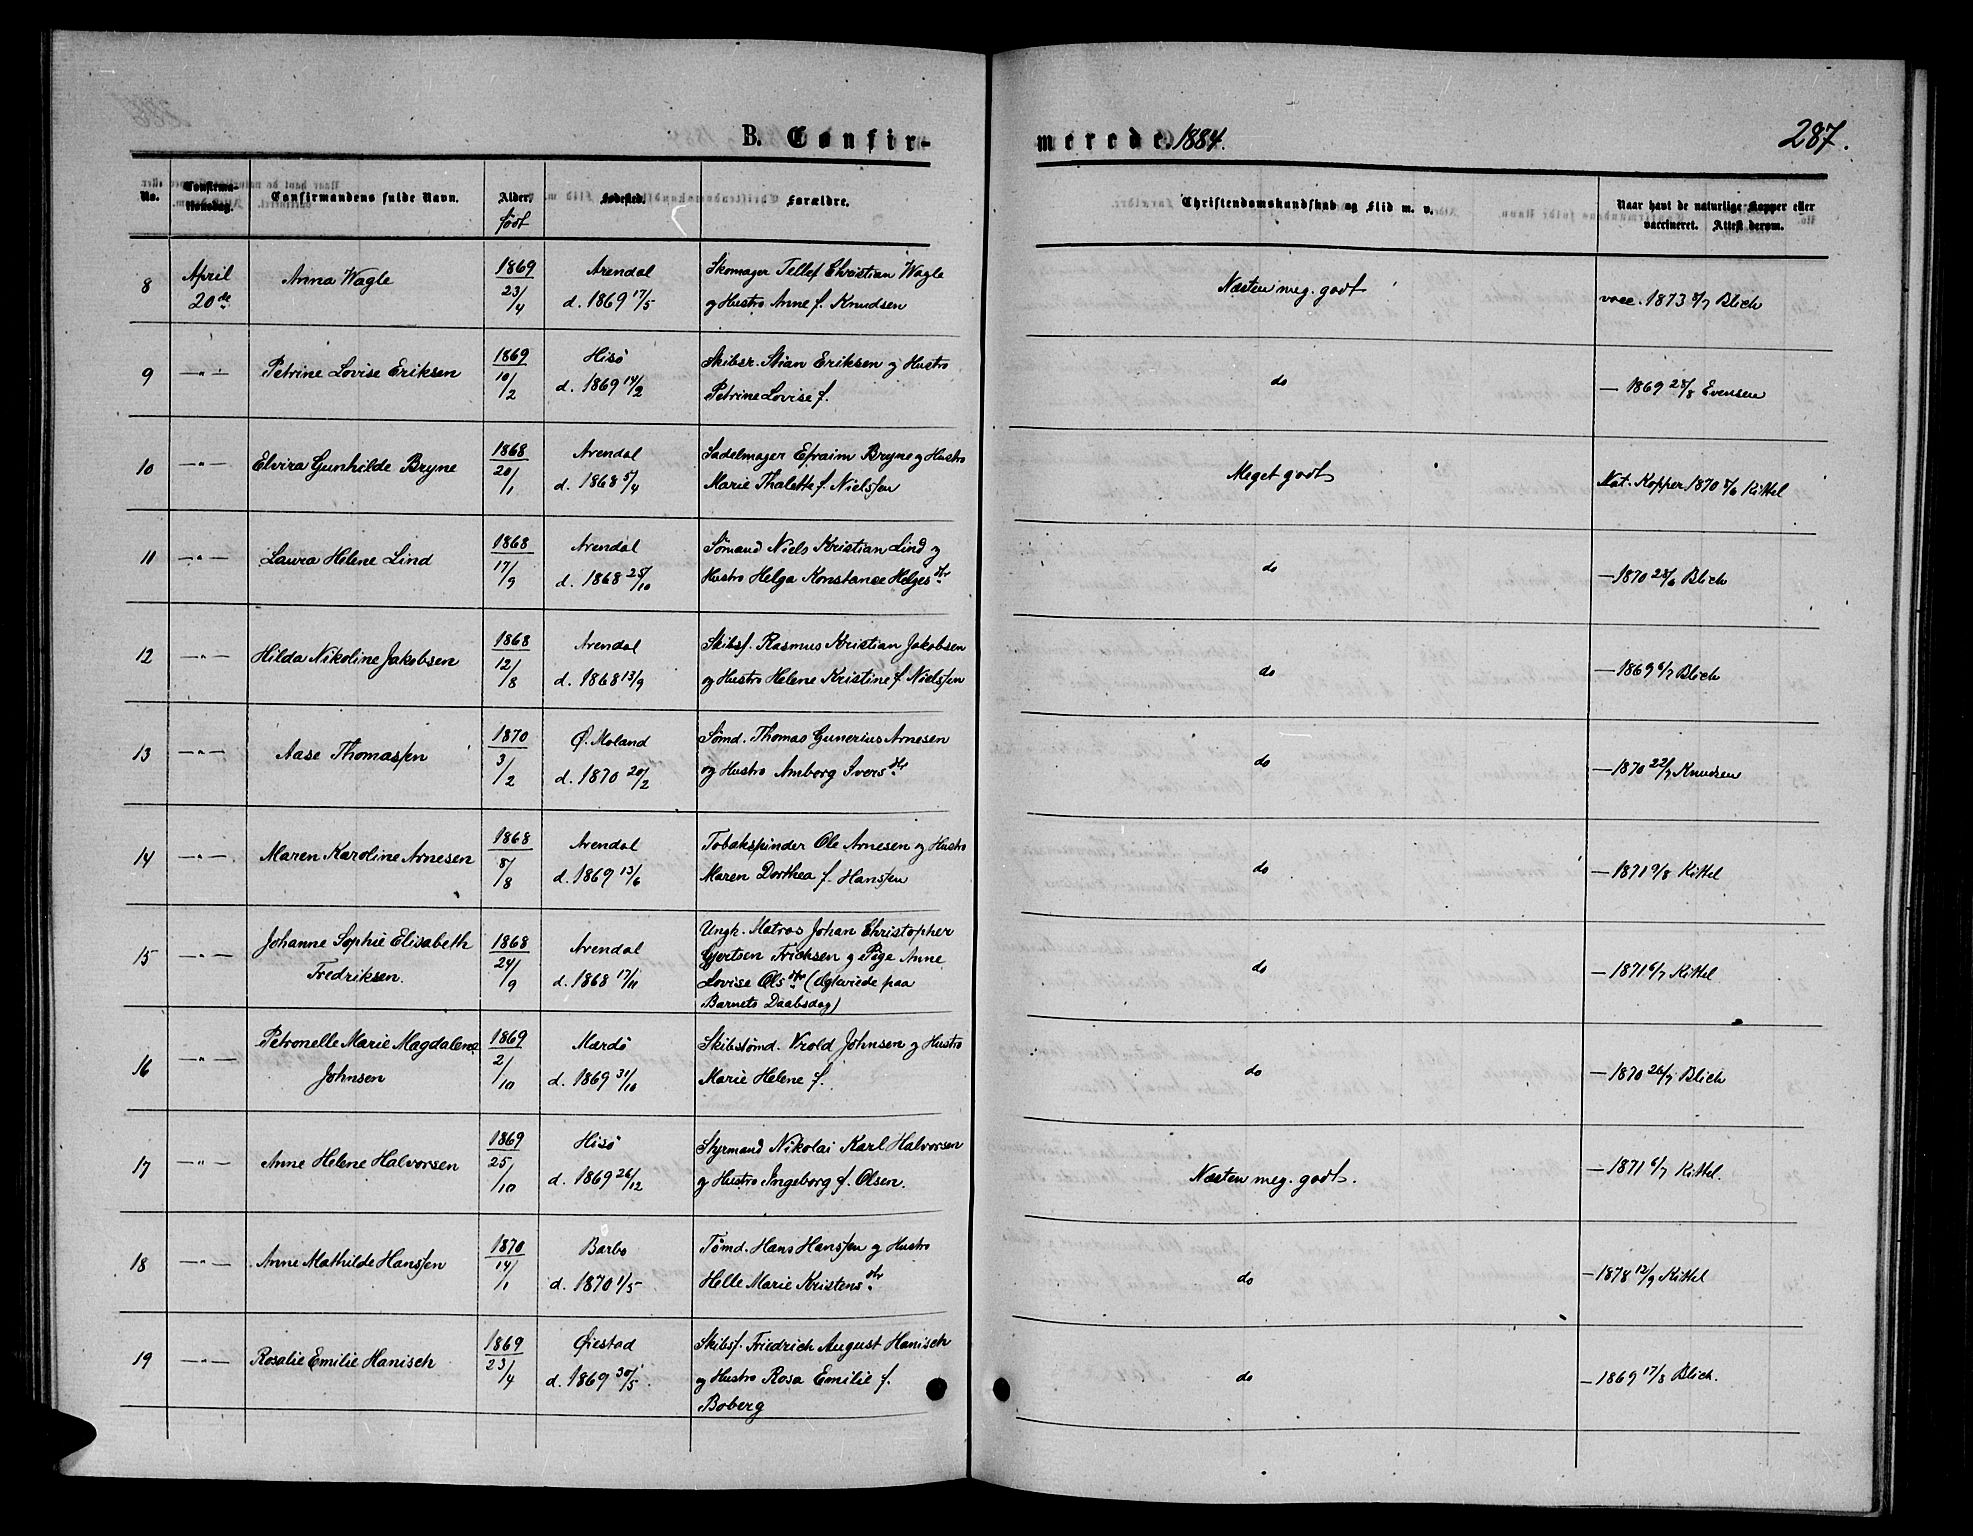 B. Confirmerede. 1884.
287.
No.
Confirmationsdag.
Confirmandens fulde Navn.
Alder. født
Fødested.
Forældre.
Christendomskundskab og Flid m. v.
Naar havt de naturlige Kopper eller vaccineret. Attest derom.
8 April 20de Anna Wagle 1869 23/4 Arendal d. 1869 17/5
Skomager Tellef Christian Wagle
og Hustro Anne f. Knudsen
Næsten meg. godt
vacc. 1873 8/7 Blich
9 —"— Petrine Lovise Eriksen 1869 10/2 Hisø d. 1869 14/2
Skibsr. Stian Eriksen og Hustro
Petrine Lovise f.
do
— 1869 28/8 Evensen
10 —"— Elvira Gunhilde Bryne 1868 20/1 Arendal d. 1868 5/4
Sadelmager Efraim Bryne og Hustro
Marie Thalette f. Nielsen
Meget godt
Nat. Kopper 1870 8/6 Kittel
11 —"— Laura Helene Lind 1868 17/9 Arendal d. 1868 25/10
Sømand Niels Kristian Lind og
Hustro Helga Konstanse Helgesdtr
do
— 1870 28/6 Blich
12 —"— Hilda Nikoline Jakobsen 1868 12/8 Arendal d. 1868 13/9
Skibsf. Rasmus Kristian Jakobsen
og Hustro Helene Kristine f. Nielsen
do
— 1869 6/7 Blich
13 —"— Aase Thomassen 1870 3/2 Ø. Moland d. 1870 20/2
Sømd. Thomas Gunerius Arnesen
og Hustro Amborg Iversdtr
do
— 1870 22/7 Knudsen
14 —"— Maren Karoline Arnesen 1868 8/8 Arendal d. 1869 13/6
Tobakspinder Ole Arnesen og Hustro
Maren Dorthea f. Hanssen
do
— 1871 9/8 Kittel
15 —"— Johanne Sophie Elisabeth
Fredriksen. 1868 24/9 Arendal d. 1868 17/11
Ungk. Matros Johan Christopher
Gjertsen Fricksen og Pige Anne
Lovise Olsdtr (Ægtviede paa
Barnets Daabsdag)
do
— 1871 6/7 Kittel
16 —"— Petronelle Marie Magdalene
Johnsen 1869 2/10 Mærdø d. 1869 31/10
Skibstømd. Vrold Johnsen og Hustro
Marie Helene f.
do
— 1870 26/7 Blich
17 —"— Anne Helene Halvorsen 1869 25/10 Hisø d. 1869 26/12
Styrmand Nikolai Karl Halvorsen
og Hustro Ingeborg f. Olsen.
Næsten meg. godt.
— 1871 6/7 Kittel.
18 —"— Anne Mathilde Hanssen 1870 14/1 Barbo d. 1870 1/5
Tømd. Hans Hanssen og Hustro
Helle Marie Kristensdtr
do
— 1878 12/9 Kittel
19 —"— Rosalie Emilie Hanisch 1869 23/4 Øiestad d. 1869 30/5
Skibsf. Friedrich August Hanisch
og Hustro Rosa Emilie f.
Boberg
do
— 1869 17/8 Blich.